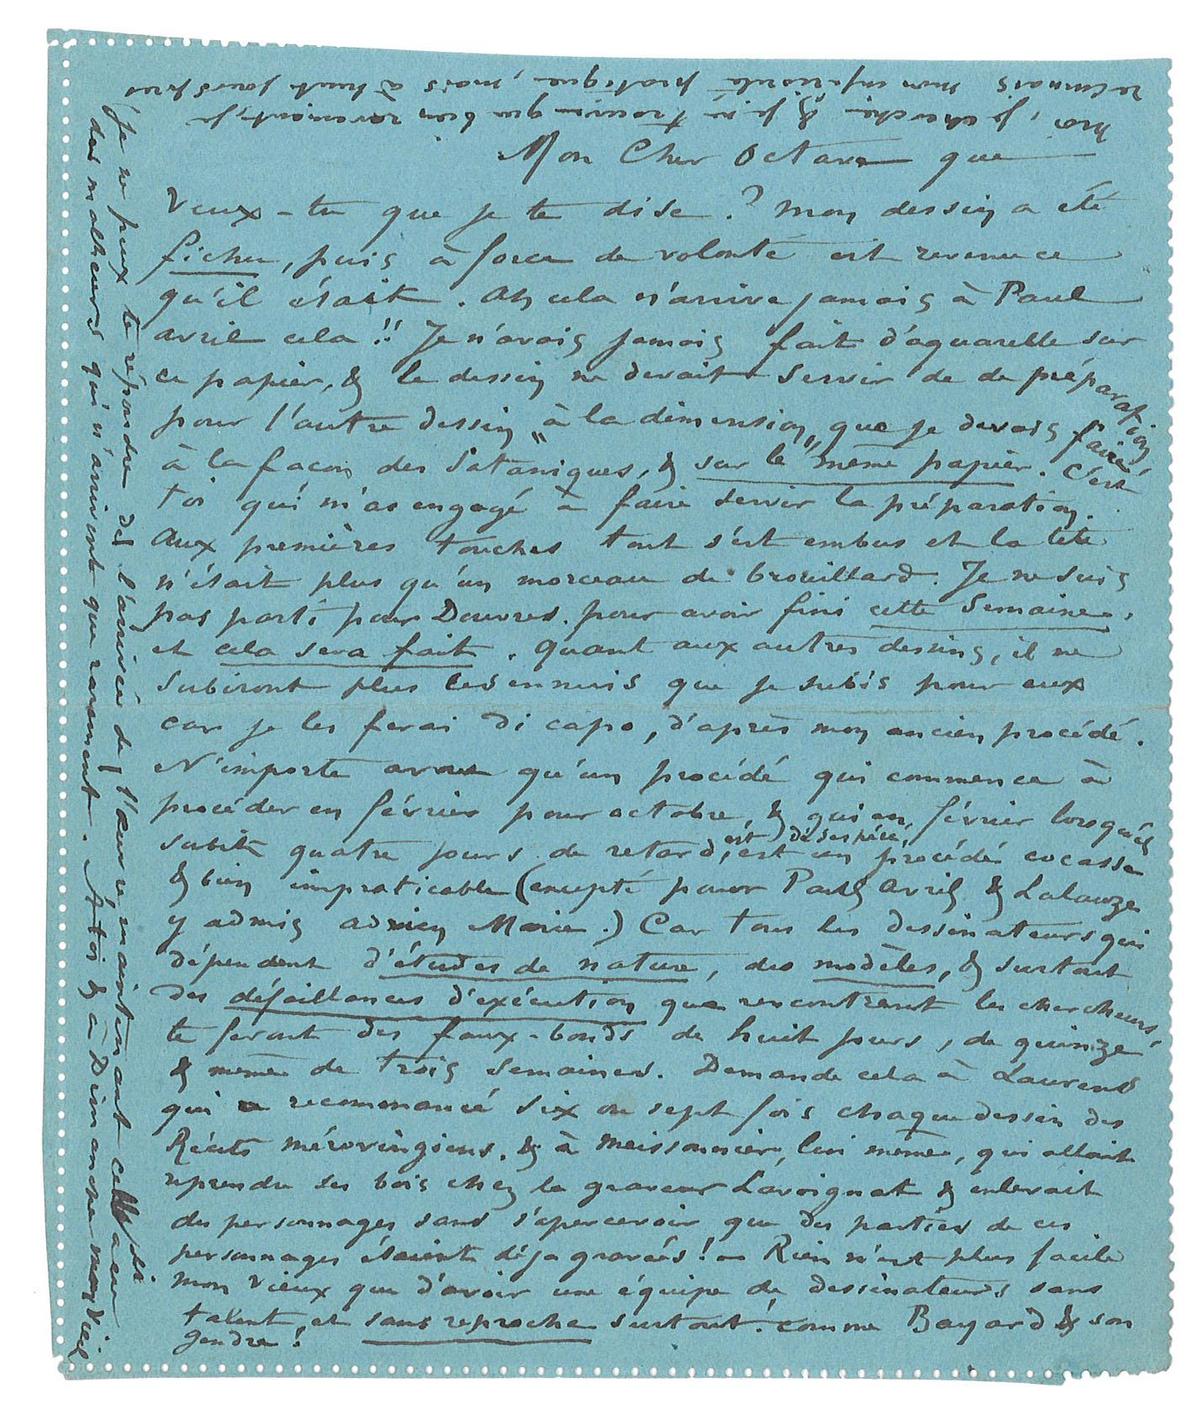 Mon Cher Octave que
veux-tu que je te dise ? Mon dessin a été
fichu, puis à force de volonté est revenu ce
qu'il était. Ah cela n'arrive jamais à Paul
avril cela !! Je n'avais jamais fait d'aquarelle sur
ce papier, & le dessin ne devait servir de de préparation
pour l'autre dessin "à la dimension" que je devais faire
à la façon des Sataniques, & sur le même papier. C'est
toi qui m'as engagé à faire servir la préparation.
Aux premières touches tout s'est embus et la tête
n'était plus qu'un morceau de brouillard. Je ne suis
pas parti pour Douvres. pour avoir fini cette Semaine,
et cela sera fait. Quant aux autres dessins, il ne
subiront plus les ennuis que je subis pour eux
car je les ferai di capo, d'après mon ancien procédé.
N'importe avoue qu'un procédé qui commence à
procéder en février pour octobre, & qui en février lorsqu'il
subit quatre jours de retard, est désespéré, est un procédé cocasse
& bien impraticable (excepté pour Paul Avril & Lalauze
y admis adrien Marie.) Car tous les dessinateurs qui
dépendent d'études de nature, des modèles, & surtout
des défaillances d'exécution que rencontrent les chercheurs
te feront des faux-bonds de huit jours, de quinze
& même de trois semaines. Demande cela à Laurens
qui a recommencé six ou sept fois chaque dessin des
Récits mérovingiens, & à Meissonnier, lui même, qui allait
reprendre ses bois chez le graveur Lavoignat & enlevait
des personnages sans s'apercevoir que des parties de ces
personnages étaient déjà gravées ! — Rien n'est plus facile
mon vieux que d'avoir une équipe de dessinateurs sans
talent, et sans reproche surtout, comme Bayard & son
gendre !
Moi, je cherche & je ne trouve que bien rarement, je
reconnais mon infériorité pratique, mais à huit jours près
je ne peux te répondre de l'arrivée de l'œuvre, maintenant
des malheurs qui n'arrivent que rarement. A toi & à Dimanche mon Vieil